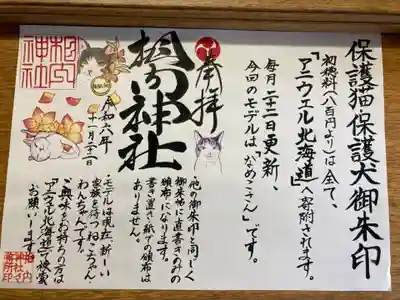 保護猫・保護犬御朱印
初穂料(八百円より)は全て、
「アニウェル北海道」へ寄附されます。
毎月二十二日更新、
今回のモデルは、「なめこさん」です。
奉拝
相内神社
令和六年
十一月二十二日
相内神社
他の御朱印と同じく
御朱印帖に直書きのみの
頒布になります。
書き置き、紙での頒布は
ありません。
・モデルは現在、新しい
家族を待つねこちゃん・
わんちゃんです。
ご興味をお持ちの方は
「アニウェル北海道」で検索
お願いします。